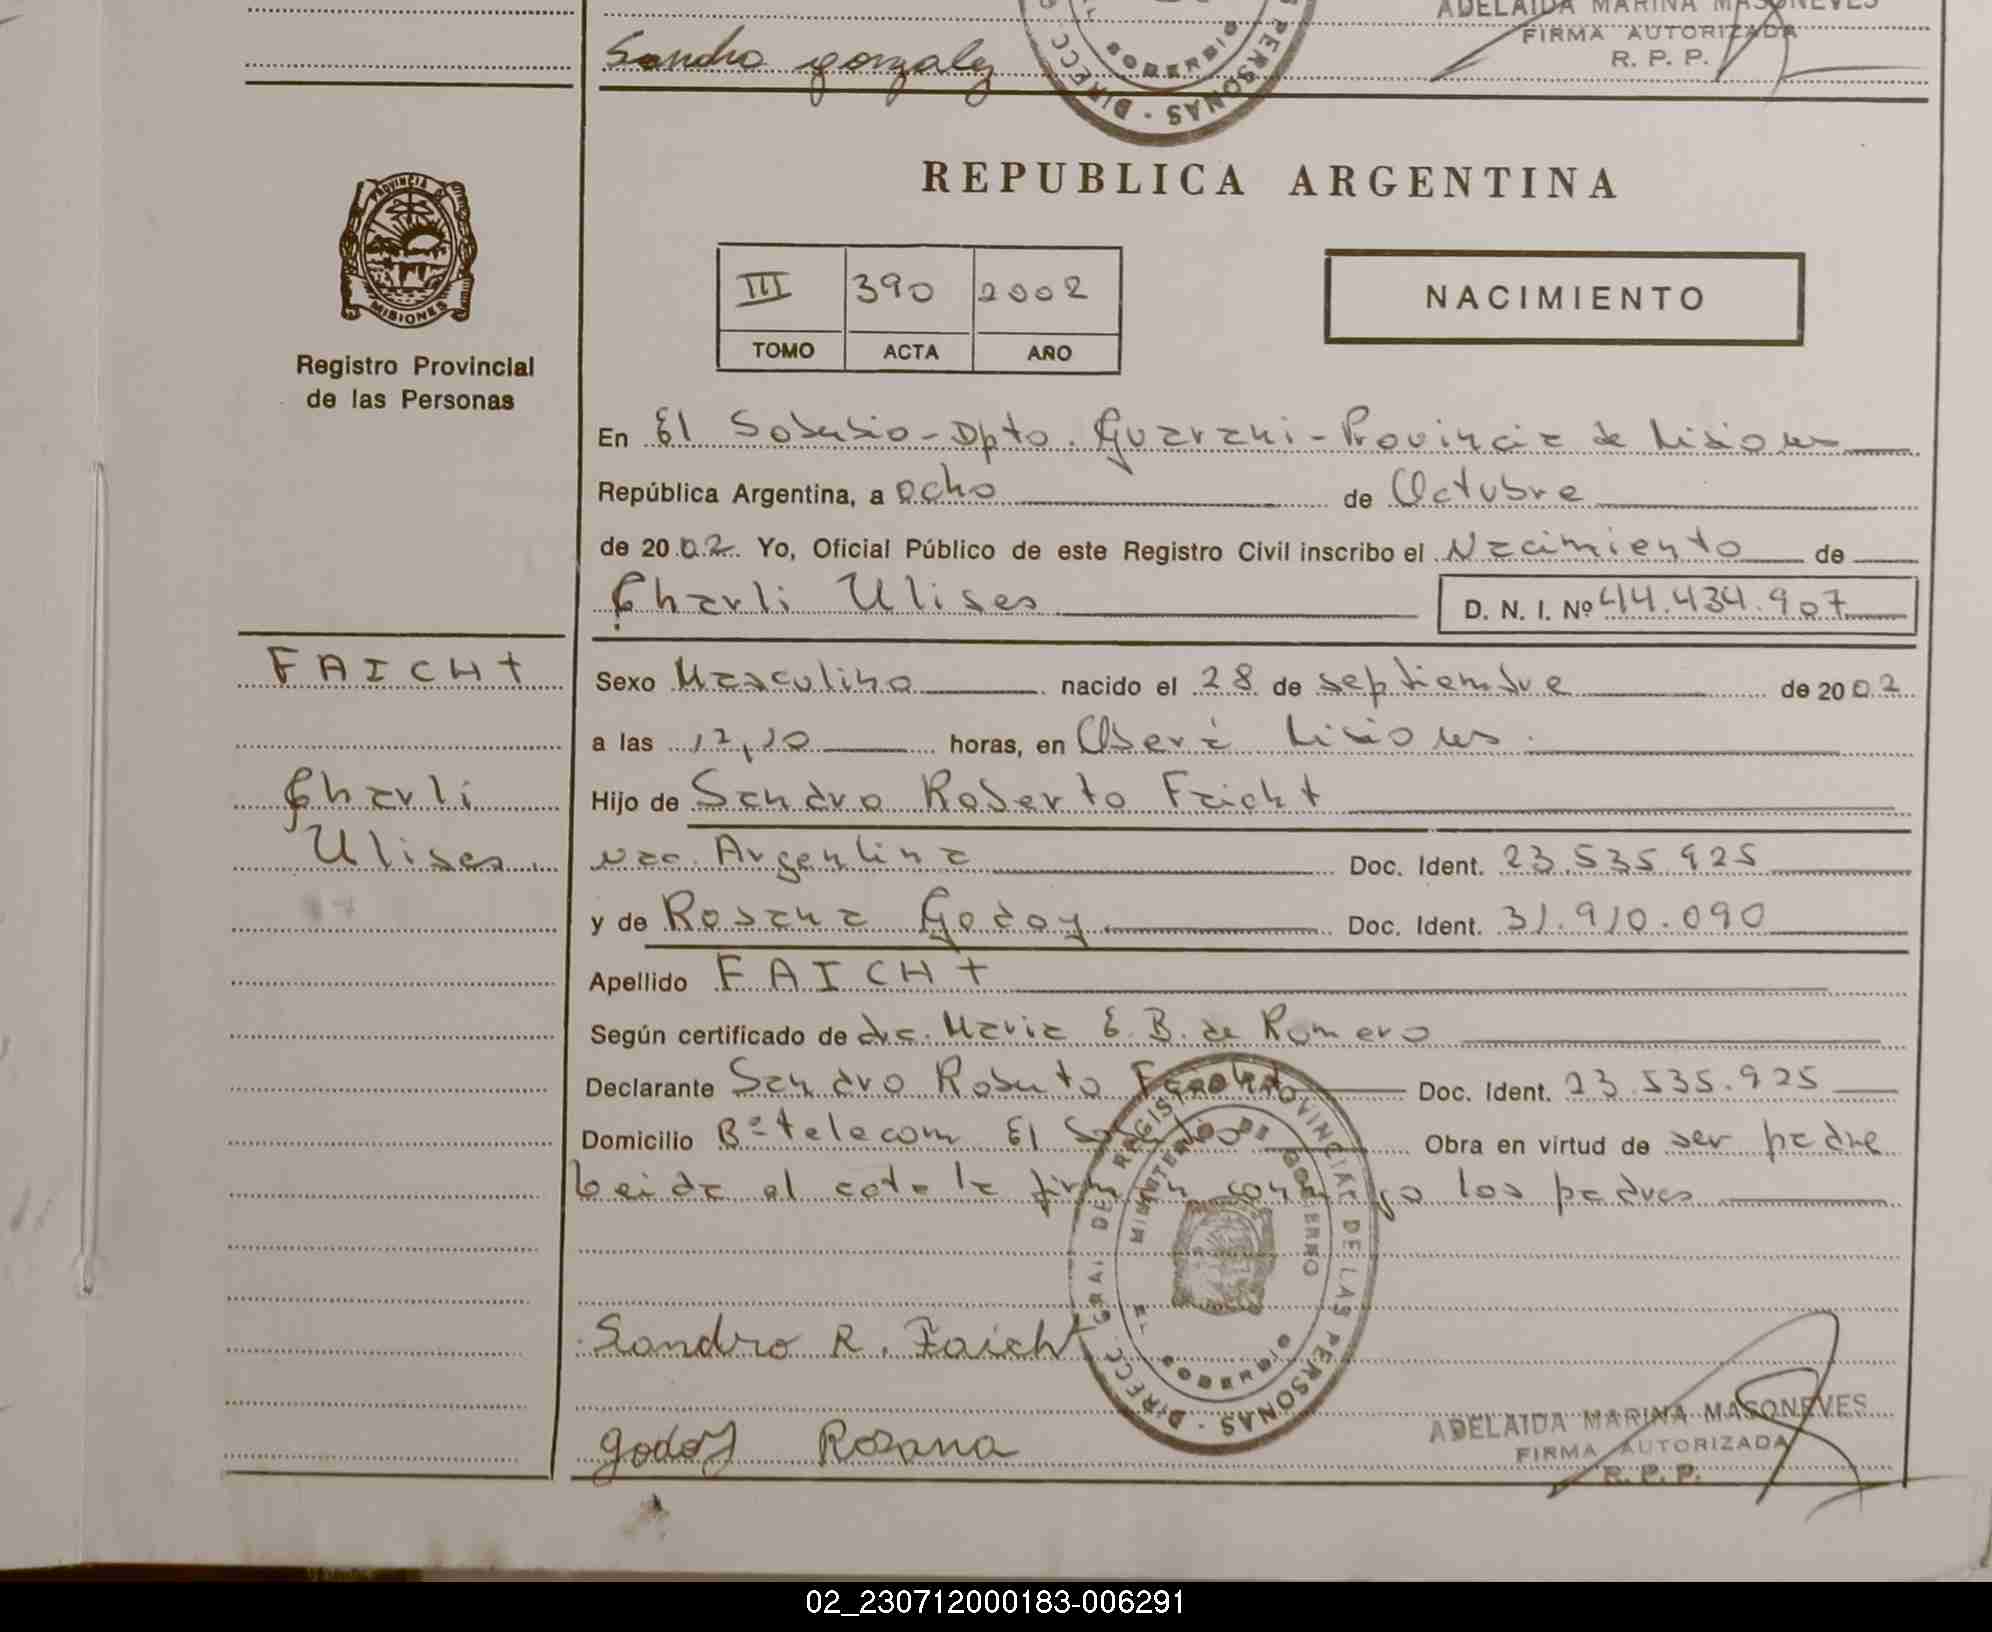 ADELAIDA MARINA MASONEVES
FIRMA AUTORIZADA
R. P. P.
Sandro gonzalez
DIRECC. PERSONAS
REPUBLICA ARGENTINA
PROVINCIA DE
MISIONES
Registro Provincial
de las Personas
III 390 2002
TOMO ACTA AÑO
NACIMIENTO
En El Soberbio - Dpto. Guarani - Provincia de Misiones
República Argentina, a ocho de Octubre
de 2002 Yo, Oficial Público de este Registro Civil inscribo el Nacimiento de
Charli Ulises D. N. I. Nº 44.434.907
FAICHt
Charli
Ulises
Sexo Masculino nacido el 28 de septiembre de 2002
a las 12,10 horas, en Oberá Misiones.
Hijo de Sandro Roberto Faicht
nac. Argentina Doc. Ident. 23.535.925
y de Rosana Godoy Doc. Ident. 31.910.090
Apellido FAICHt
Según certificado de dra. Maria E. B. de Romero
Declarante Sandro Roberto Faicht Doc. Ident. 23.535.925
Domicilio Bº telecom El Soberbio Obra en virtud de ser padre
Leida el acta la firman conmigo los padres
DIRECC. GRAL DE REGISTRO PROVINCIAL DE LAS PERSONAS
MINISTERIO DE GOBIERNO
EL SOBERBIO
Sandro R. Faicht
godoy Rosana
ADELAIDA MARINA MASONEVES
FIRMA AUTORIZADA
R. P. P.
02_230712000183-006291